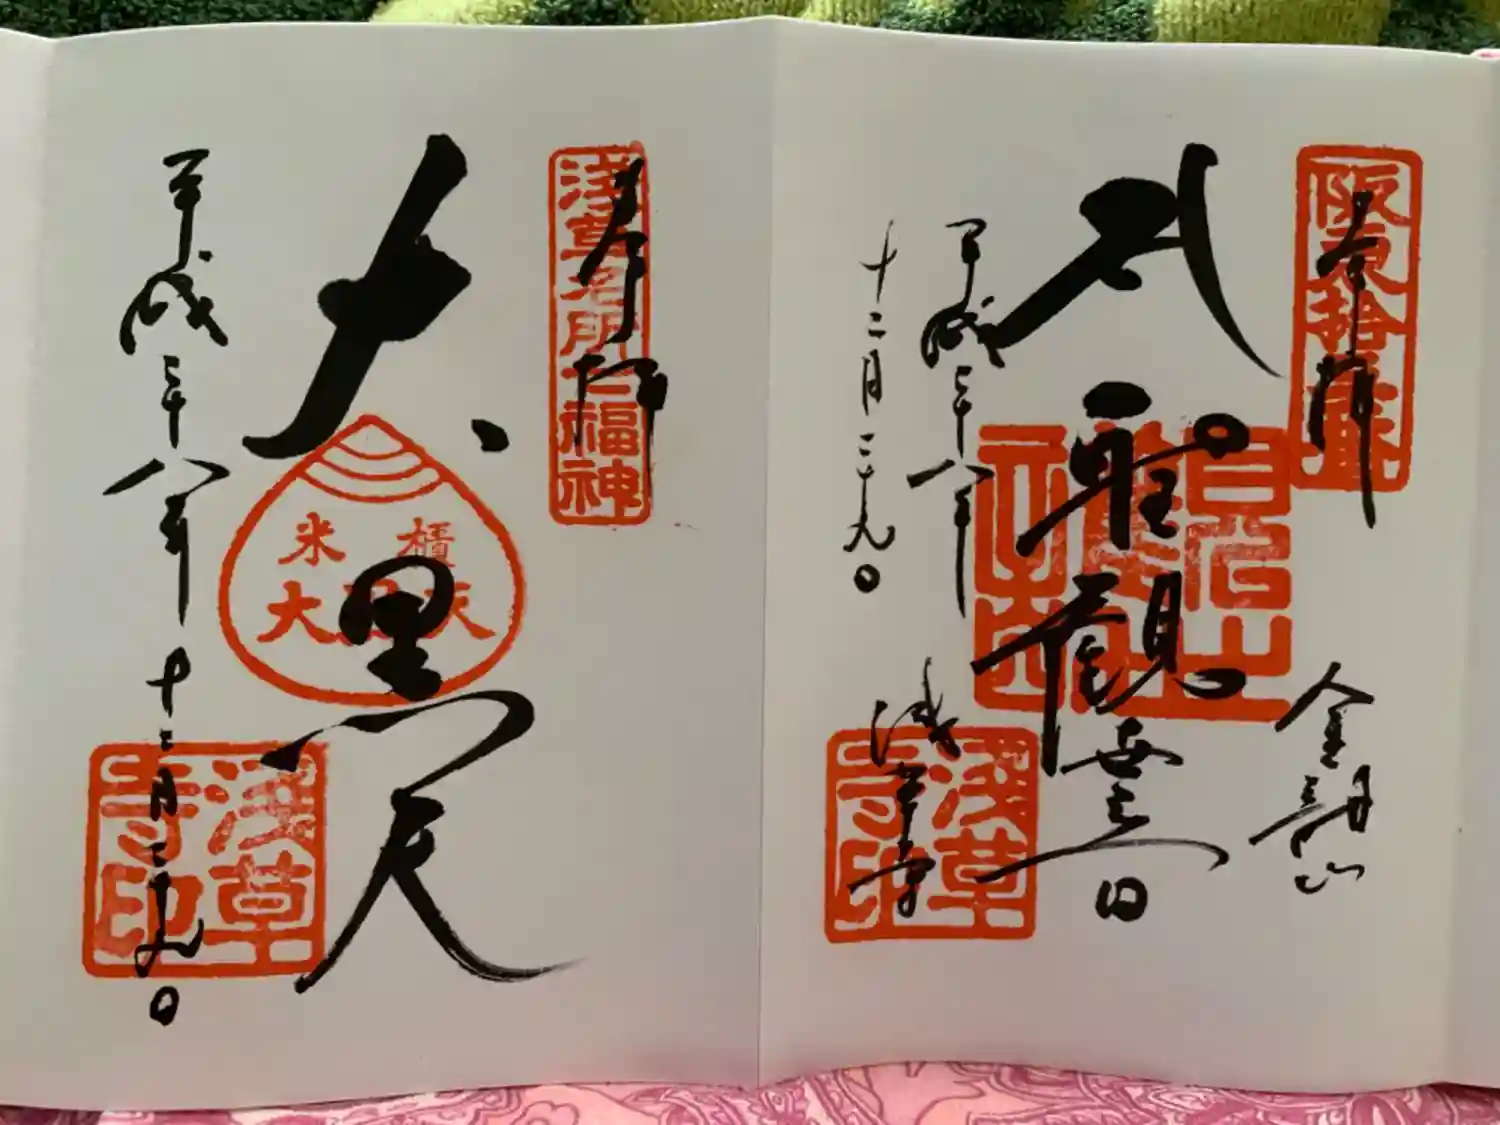 阪東拾三番
奉拝
金龍山
聖観世音
平成二十八年
十二月二十九日
浅草寺
浅草寺印
浅草名所七福神
奉拝
大黒天
米櫃
大黒天
平成二十八年十二月二十九日
浅草寺印